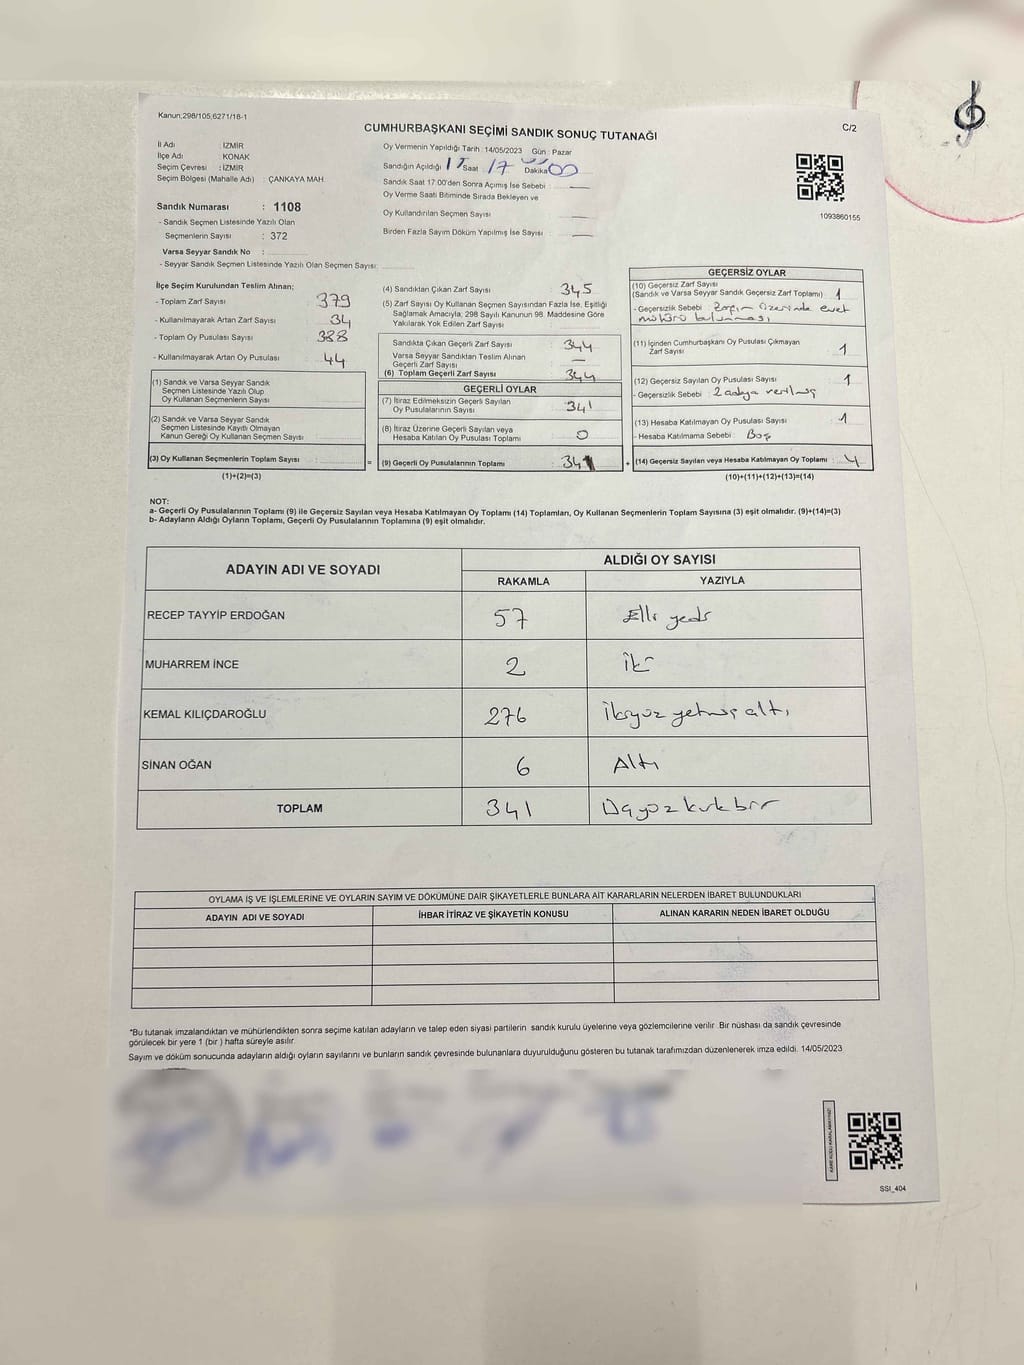 Kanun;298/105,6271/18-1
CUMHURBAŞKANI SEÇİMİ SANDIK SONUÇ TUTANAĞI
C/2
İl Adı : İZMİR
İlçe Adı : KONAK
Seçim Çevresi : İZMİR
Seçim Bölgesi (Mahalle Adı) : ÇANKAYA MAH.
Sandık Numarası : 1108
- Sandık Seçmen Listesinde Yazılı Olan
Seçmenlerin Sayısı : 372
Varsa Seyyar Sandık No :
- Seyyar Sandık Seçmen Listesinde Yazılı Olan Seçmen Sayısı:
Oy Vermenin Yapıldığı Tarih :14/05/2023 Gün : Pazar
Sandığın Açıldığı Saat 17 Dakika 00
Sandık Saat 17.00'den Sonra Açımış İse Sebebi : —
Oy Verme Saati Bitiminde Sırada Bekleyen ve
Oy Kullandırılan Seçmen Sayısı : —
Birden Fazla Sayım Döküm Yapılmış İse Sayısı : —
1093860155
İlçe Seçim Kurulundan Teslim Alınan;
- Toplam Zarf Sayısı : 379
- Kullanılmayarak Artan Zarf Sayısı : 34
- Toplam Oy Pusulası Sayısı : 388
- Kullanılmayarak Artan Oy Pusulası : 44
(1) Sandık ve Varsa Seyyar Sandık
Seçmen Listesinde Yazılı Olup
Oy Kullanan Seçmenlerin Sayısı :
(2) Sandık ve Varsa Seyyar Sandık
Seçmen Listesinde Kayıtlı Olmayan
Kanun Gereği Oy Kullanan Seçmen Sayısı :
(3) Oy Kullanan Seçmenlerin Toplam Sayısı :
(1)+(2)=(3)
(4) Sandıktan Çıkan Zarf Sayısı : 345
(5) Zarf Sayısı Oy Kullanan Seçmen Sayısından Fazla İse, Eşitliği
Sağlamak Amacıyla; 298 Sayılı Kanunun 98. Maddesine Göre
Yakılarak Yok Edilen Zarf Sayısı :
Sandıkta Çıkan Geçerli Zarf Sayısı : 344
Varsa Seyyar Sandıktan Teslim Alınan
Geçerli Zarf Sayısı : —
(6) Toplam Geçerli Zarf Sayısı : 344
GEÇERLİ OYLAR
(7) İtiraz Edilmeksizin Geçerli Sayılan
Oy Pusulalarının Sayısı : 341
(8) İtiraz Üzerine Geçerli Sayılan veya
Hesaba Katılan Oy Pusulası Toplamı : 0
= (9) Geçerli Oy Pusulalarının Toplamı : 341 +
GEÇERSİZ OYLAR
(10) Geçersiz Zarf Sayısı
(Sandık ve Varsa Seyyar Sandık Geçersiz Zarf Toplamı) : 1
- Geçersizlik Sebebi : Zarfın üzerinde evet
mührü bulunması
(11) İçinden Cumhurbaşkanı Oy Pusulası Çıkmayan
Zarf Sayısı : 1
(12) Geçersiz Sayılan Oy Pusulası Sayısı : 1
- Geçersizlik Sebebi : 2 adaya verilmiş
(13) Hesaba Katılmayan Oy Pusulası Sayısı : 1
- Hesaba Katılmama Sebebi : Boş
(14) Geçersiz Sayılan veya Hesaba Katılmayan Oy Toplamı : 4
(10)+(11)+(12)+(13)=(14)
NOT:
a- Geçerli Oy Pusulalarının Toplamı (9) ile Geçersiz Sayılan veya Hesaba Katılmayan Oy Toplamı (14) Toplamları, Oy Kullanan Seçmenlerin Toplam Sayısına (3) eşit olmalıdır. (9)+(14)=(3)
b- Adayların Aldığı Oyların Toplamı, Geçerli Oy Pusulalarının Toplamına (9) eşit olmalıdır.
ADAYIN ADI VE SOYADI
ALDIĞI OY SAYISI
RAKAMLA YAZIYLA
RECEP TAYYİP ERDOĞAN 57 Elli yedi
MUHARREM İNCE 2 İki
KEMAL KILIÇDAROĞLU 276 İkiyüz yetmiş altı
SİNAN OĞAN 6 Altı
TOPLAM 341 Üçyüz kırk bir
OYLAMA İŞ VE İŞLEMLERİNE VE OYLARIN SAYIM VE DÖKÜMÜNE DAİR ŞİKAYETLERLE BUNLARA AİT KARARLARIN NELERDEN İBARET BULUNDUKLARI
ADAYIN ADI VE SOYADI İHBAR İTİRAZ VE ŞİKAYETİN KONUSU ALINAN KARARIN NEDEN İBARET OLDUĞU
*Bu tutanak imzalandıktan ve mühürlendikten sonra seçime katılan adayların ve talep eden siyasi partilerin sandık kurulu üyelerine veya gözlemcilerine verilir. Bir nüshası da sandık çevresinde
görülecek bir yere 1 (bir ) hafta süreyle asılır.
Sayım ve döküm sonucunda adayların aldığı oyların sayılarını ve bunların sandık çevresinde bulunanlara duyurulduğunu gösteren bu tutanak tarafımızdan düzenlenerek imza edildi. 14/05/2023
KARE KODU KARALAMAYINIZ!
SSI_404